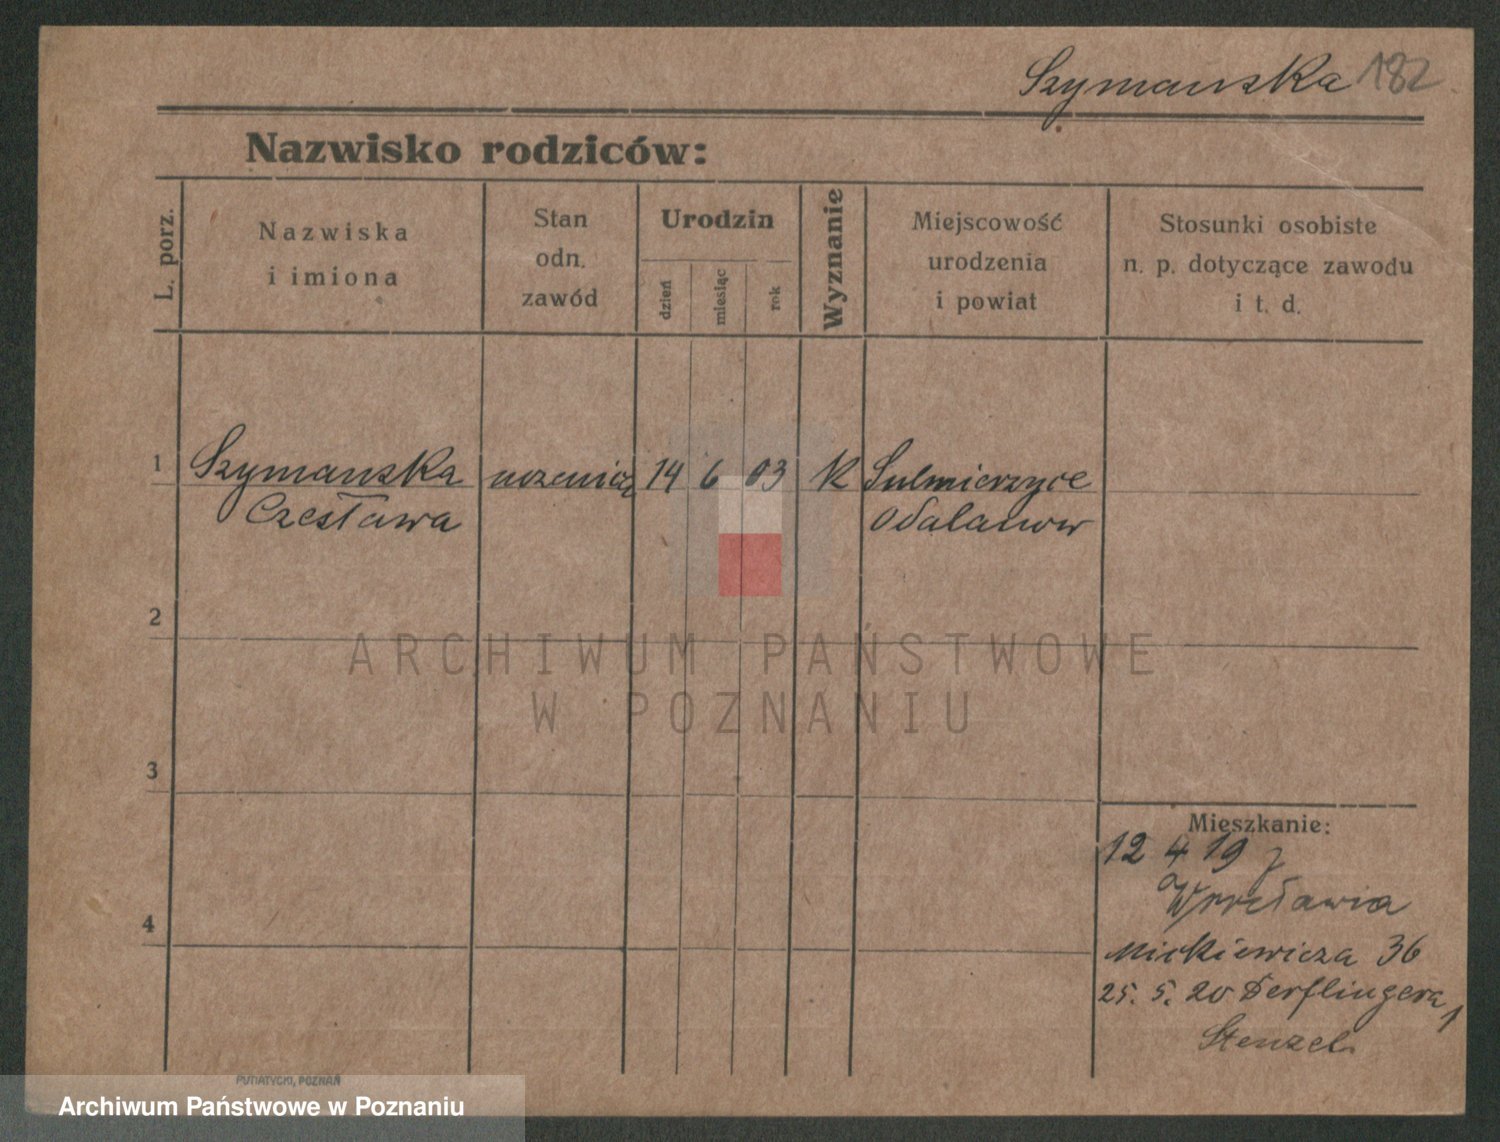 Szymanska 182
Nazwisko rodziców:
L. porz.
Nazwiska
i imiona
Stan
odn.
zawód
Urodzin
dzień
miesiąc
rok
Wyznanie
Miejscowość
urodzenia
i powiat
Stosunki osobiste
n. p. dotyczące zawodu
i t. d.
1 Szymanska uczenica 14 6 03 K Sulmierzyce
Czesława Odalanow
2
ARCHIWUM PAŃSTWOWE
W POZNANIU
3
Mieszkanie:
12 4 19 z
Wrocławia
4
Mickiewicza 36
25. 5. 20 Derflingera 1
Stenzel
PUTIATYCKI, POZNAŃ
Archiwum Państwowe w Poznaniu